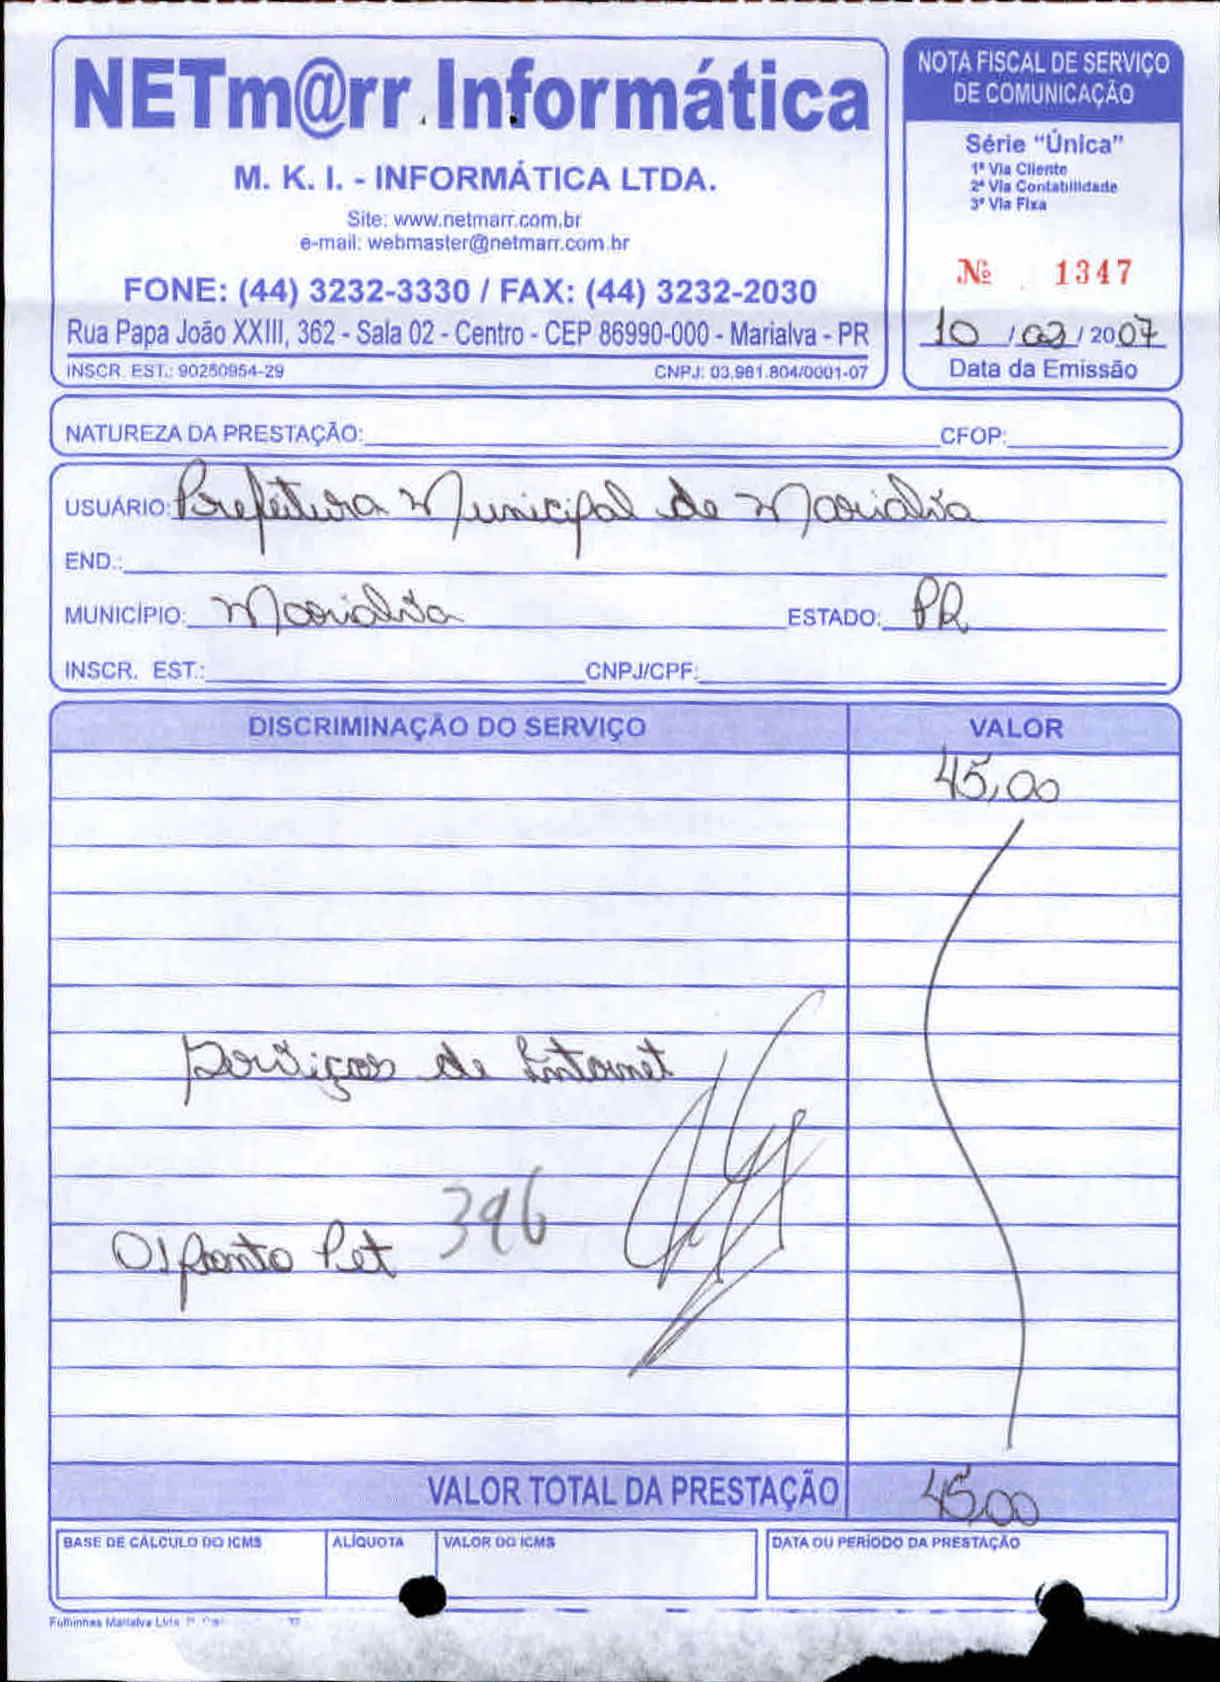 NETm@rr Informática
M. K. I. - INFORMÁTICA LTDA.
Site: www.netmarr.com.br
e-mail: webmaster@netmarr.com.br
FONE: (44) 3232-3330 / FAX: (44) 3232-2030
Rua Papa João XXIII, 362 - Sala 02 - Centro - CEP 86990-000 - Marialva - PR
INSCR. EST.: 90250954-29 CNPJ: 03.981.804/0001-07
NOTA FISCAL DE SERVIÇO
DE COMUNICAÇÃO
Série "Única"
1ª Via Cliente
2ª Via Contabilidade
3ª Via Fixa
Nº 1347
10 / 02 / 2007
Data da Emissão
NATUREZA DA PRESTAÇÃO: CFOP:
USUÁRIO: Prefeitura Municipal de Marialva
END.:
MUNICÍPIO: Marialva ESTADO: PR
INSCR. EST.: CNPJ/CPF:
DISCRIMINAÇÃO DO SERVIÇO VALOR
45,00
Serviços de Internet
396
01 ponto Pet
VALOR TOTAL DA PRESTAÇÃO 45,00
BASE DE CÁLCULO DO ICMS ALÍQUOTA VALOR DO ICMS DATA OU PERÍODO DA PRESTAÇÃO
Folhinhas Marialva Ltda